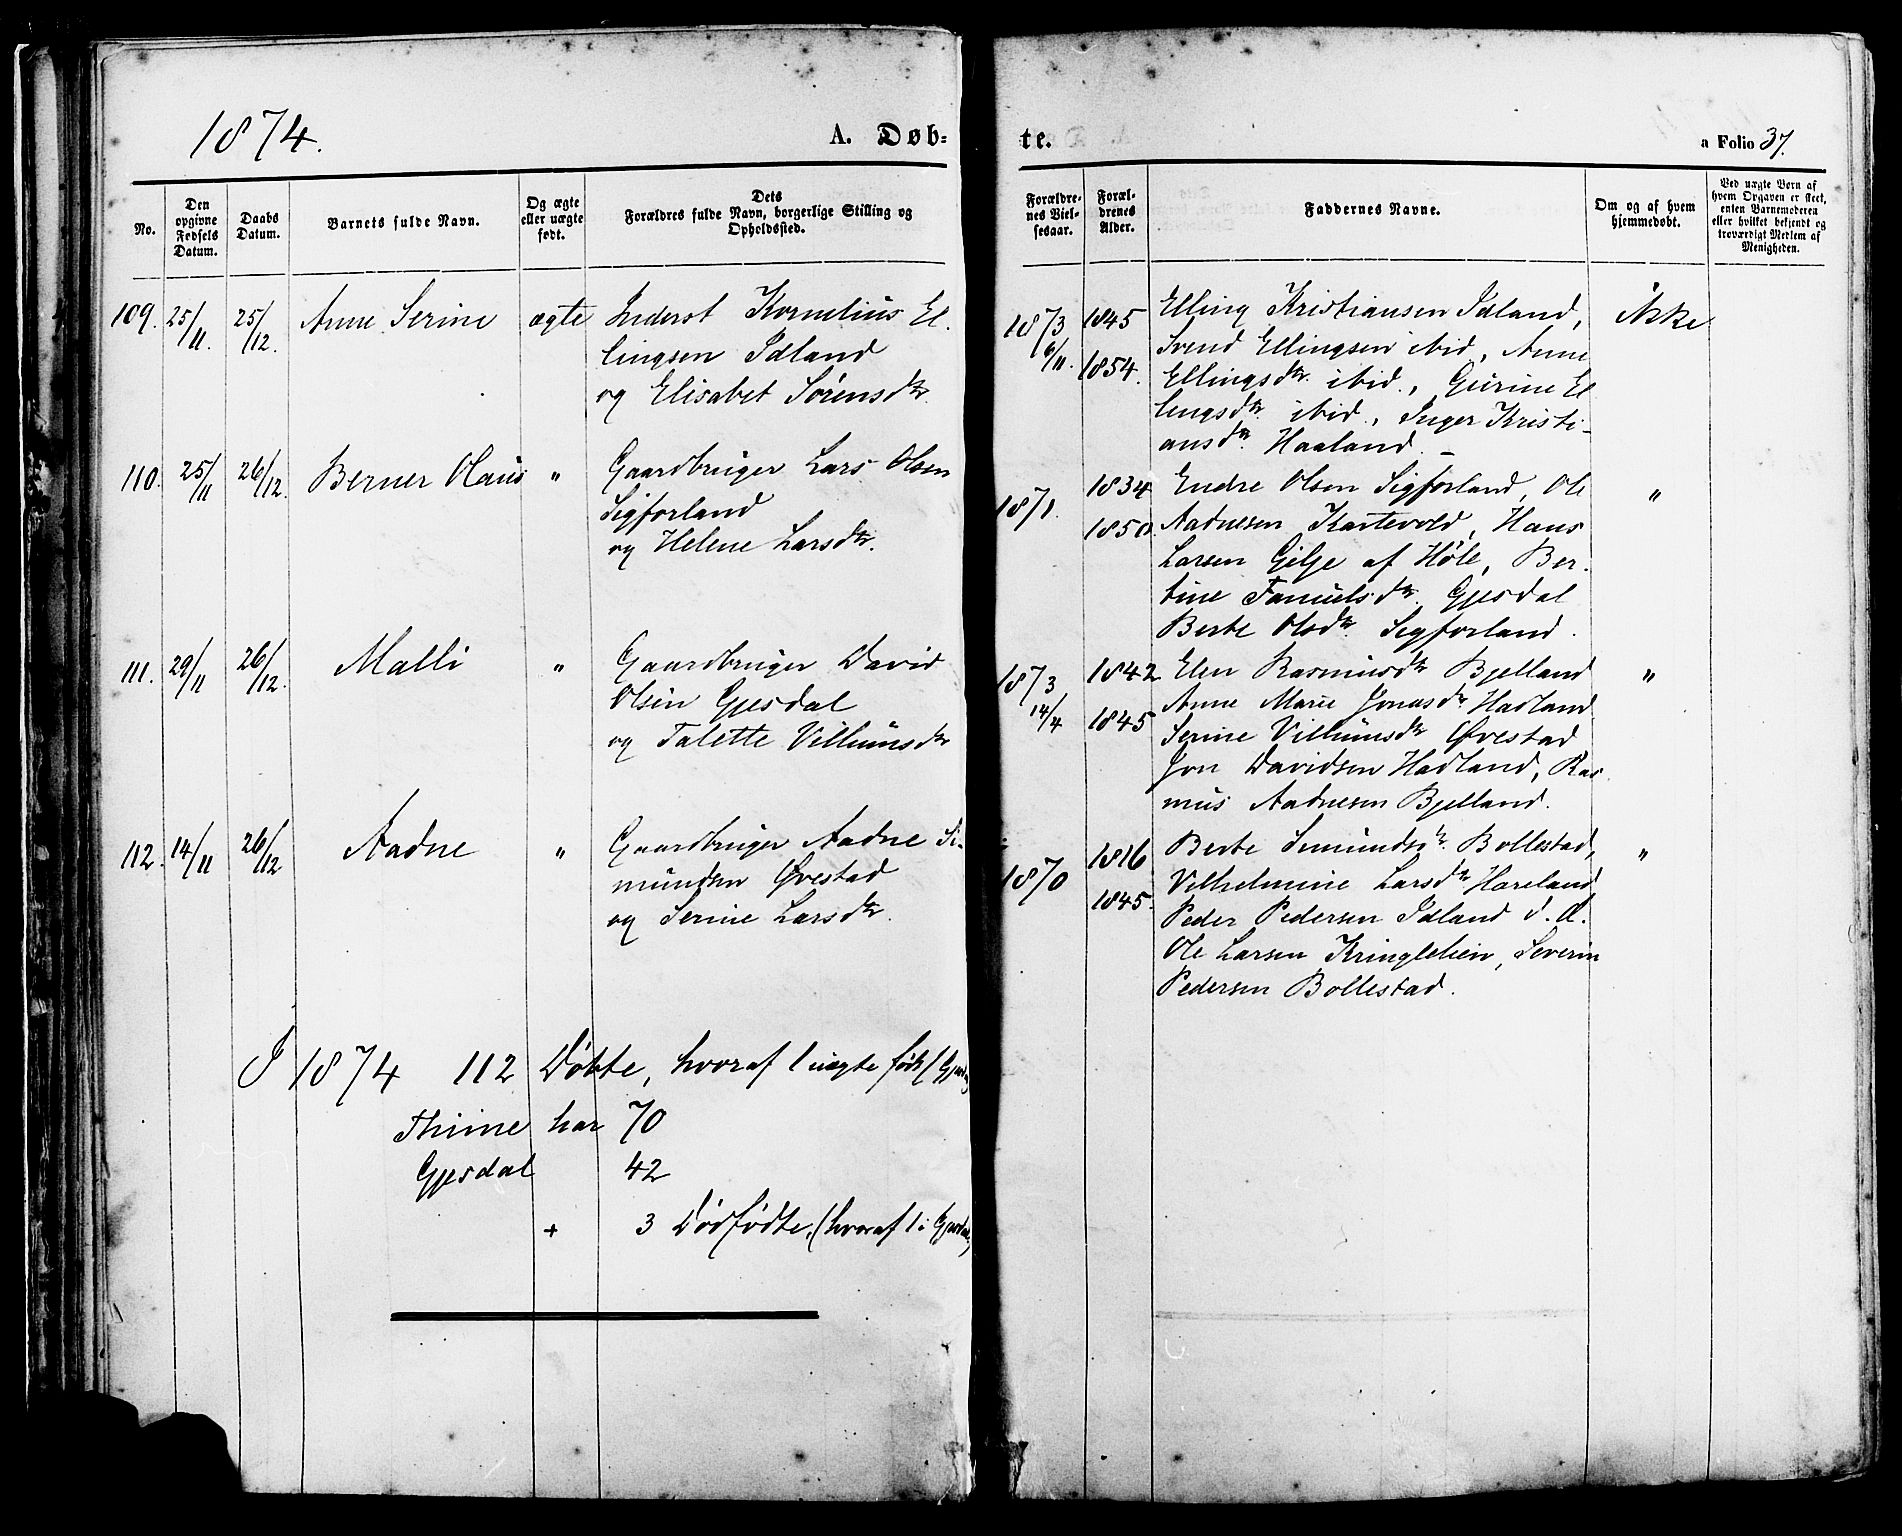 1874.
A. Døb-
No.
Den opgivne Fødsels Datum.
Daabs Datum.
Barnets fulde Navn.
Og ægte eller uægte født.
Dets Forældres fulde Navn, borgerlige Stilling og Opholdssted.
109. 25/11. 25/12. Anne Serine ægte Inderst Kornelius El-
lingsen Idland
og Elisabet Sørensdtr.
110. 25/11 26/12. Berner Olaus " Gaardbruger Lars Olsen
Sigforland
og Helene Larsdtr.
111. 29/11 26/12. Malli " Gaardbruger David
Olsen Gjesdal
og Talette Villumsdtr
112. 14/11 26/12 Aadne " Gaardbruger Aadne Si-
mundsen Øvestad
og Serine Larsdtr.
I 1874 112 Døbte, hvoraf 1 uægte født (
Thime har 70
Gjesdal 42
+ 3 Dødfødte, (hvoraf 1 i Gjesdal)
te.
a Folio 37.
Forældrenes Vielsesaar.
Forældrenes Alder.
Faddernes Navne.
Om og af hvem hjemmedøbt.
Ved uægte Børn af hvem Opgaven er skeet, enten Barnemoderen eller hvilket bekjendt og troværdigt Medlem af Menigheden.
1873 6/11. 1845 Elling Kristiansen Idland, Ikke
Svend Ellingsen ibid, Anne
1854. Ellingsdtr. ibid., Gurine El
lingsdtr. ibid., Inger Kristi-
ansdtr. Haaland.
1871. 1834 Endre Olsen Sigforland, Ole "
1850. Aadnesen Kartevold, Hans
Larsen Gilje af Høle, Ber-
tine Samuelsdtr. Gjesdal
Berte Olsdtr. Sigforland.
1873 14/4 1842 Elen Rasmusdtr Bjelland "
1845 Anne Marie Jonasdtr Hadland
Serine Villumsdtr Øvestad
Jon Davidsen Hadland, Ras
mus Aadnesen Bjelland.
1870 1816 Berte Simundsdtr. Bollestad, "
1845. Vilhelmine Larsdtr Hareland
Peder Pedersen Idland d. Æ.
Ole Larsen Kringlelien, Severin
Pedersen Bollestad.